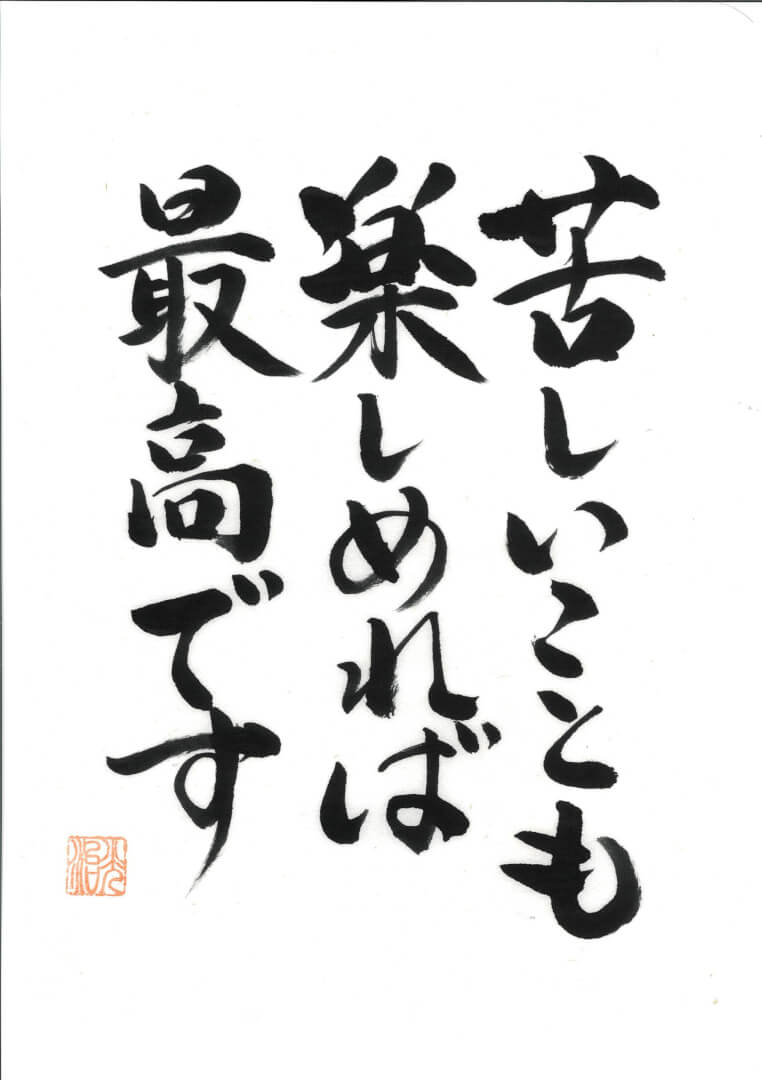 苦しいことも
楽しめれば
最高です